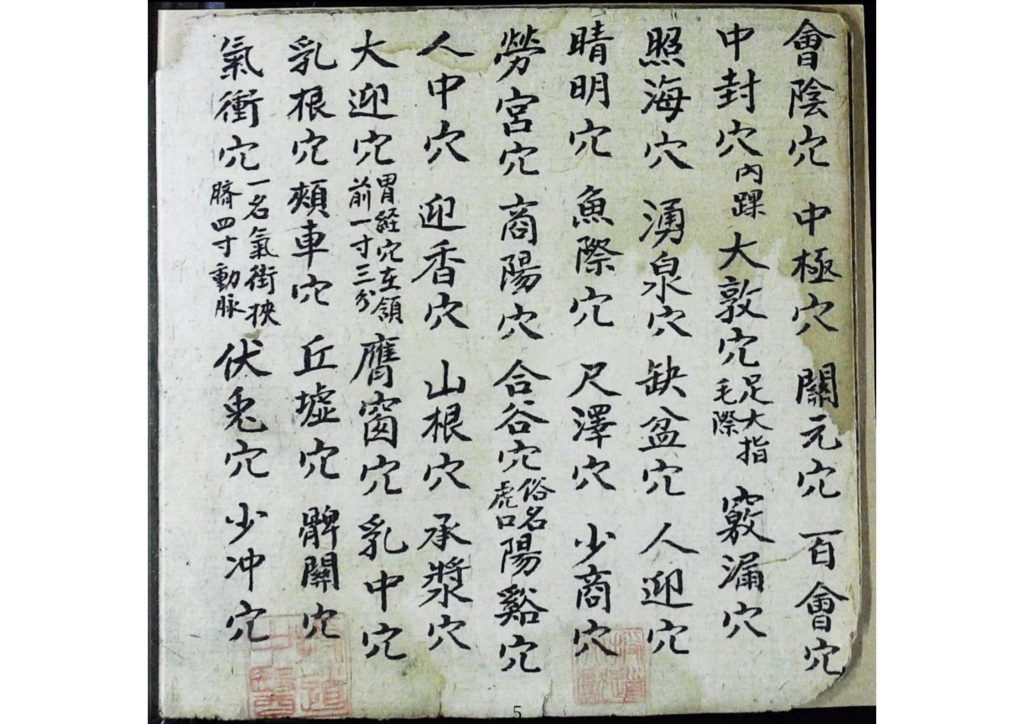 會陰穴 中極穴 關元穴 百會穴
中封穴 內踝 大敦穴 足大指毛際 竅漏穴
照海穴 湧泉穴 缺盆穴 人迎穴
晴明穴 魚際穴 尺澤穴 少商穴
勞宮穴 商陽穴 合谷穴 俗名虎口 陽谿穴
人中穴 迎香穴 山根穴 承漿穴
大迎穴 胃経穴在領前一寸三分 膺窗穴 乳中穴
乳根穴 頰車穴 丘墟穴 髀關穴
氣衝穴 一名氣街挾臍四寸動脉 伏兎穴 少冲穴
5